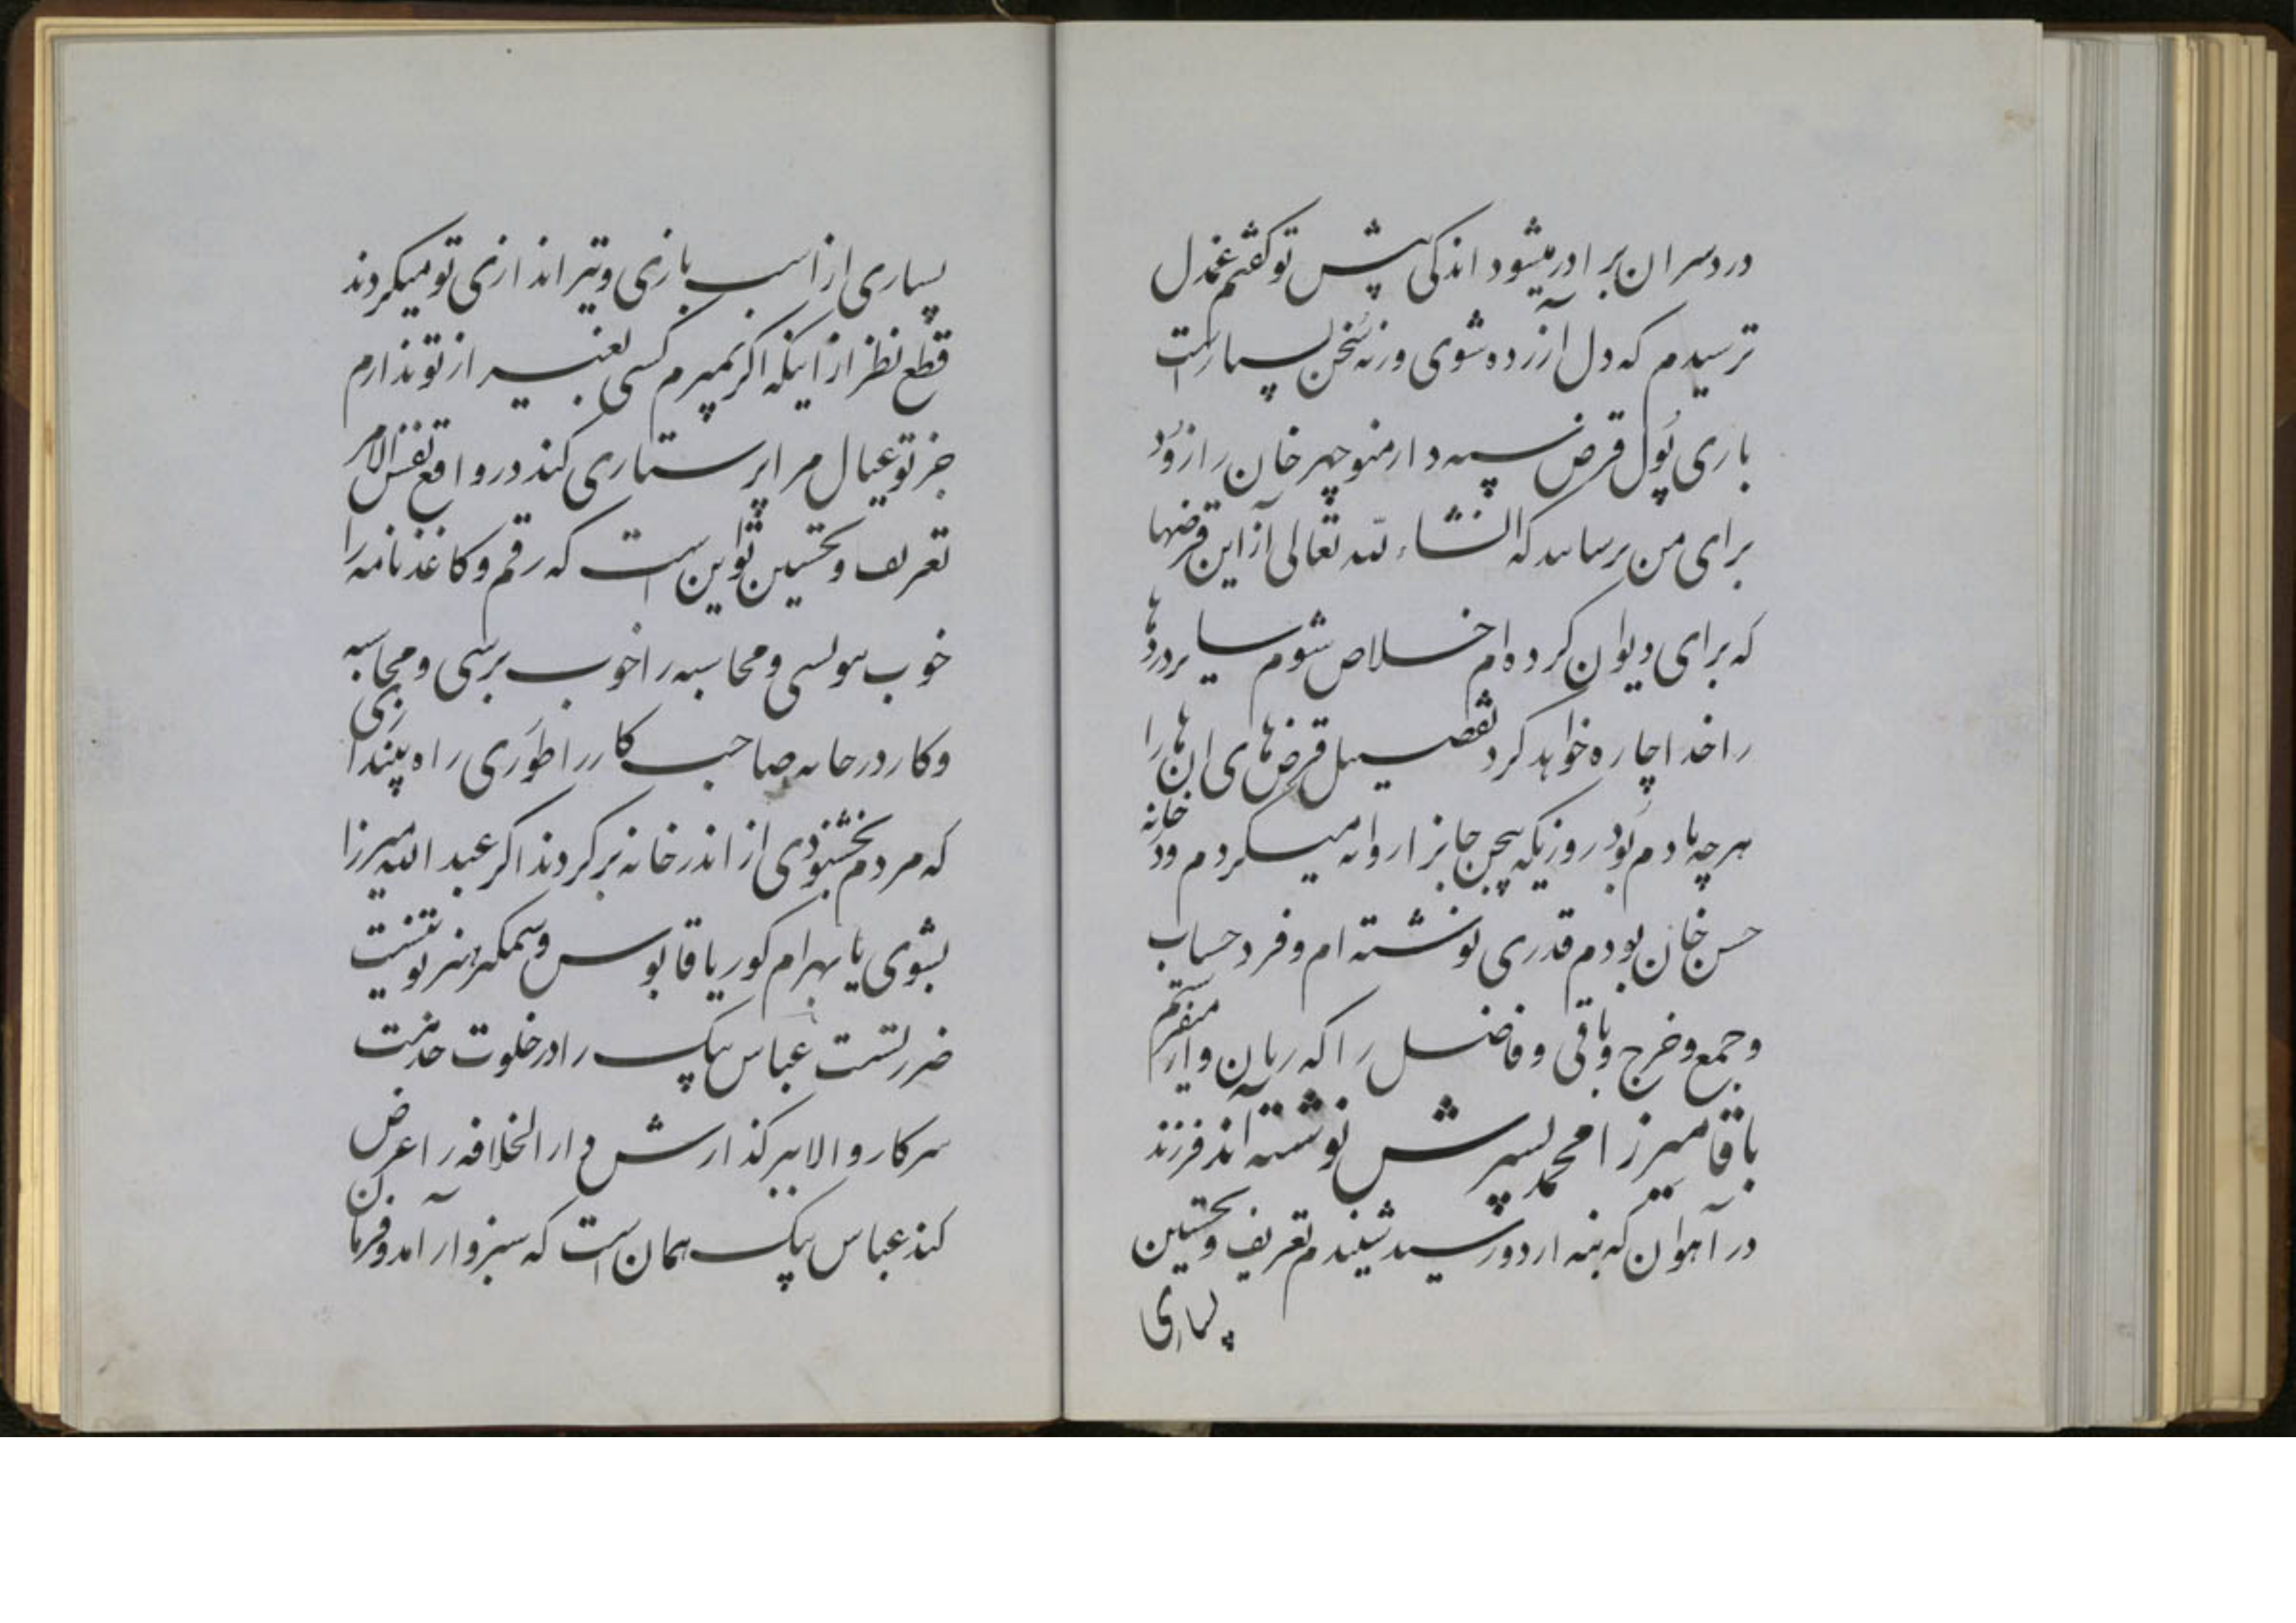 دردسر ان برادر میشود اندکی پیش تو گفتم غم دل
ترسیدم که دل آزرده شوی ورنه سخن بسیار است
باری پول قرض سپهدار منوچهر خان را زود
برای من برساند که انشاء الله تعالی از این قرضها
که برای دیوان کرده ام خلاص شوم سایر دردها
را خدا چاره خواهد کرد تفصیل قرض های ان ها را
هرچه یادم بود روزیکه پیچن جانرا روانه میکردم ودر خانه
حسن خان بودم قدری نوشته ام و فرد حساب
و جمع و خرج و باقی و فاضل را که ریان وار میفرستم
باقا میرزا محمد پسرش نوشته اند فرزند
در آهوان که بنه اردو رسید شنیدم تعریف و تحسین
بسیاری
بسیاری از اسب بازی و تیر اندازی تو میکردند
قطع نظر از اینکه اگر بمیرم کسی بغیر از تو ندارم
جز تو عیال مرا پرستاری کند در واقع نفس الامر
تعریف و تحسین تو این است که رقم و کاغذ نامه را
خوب بنویسی و محاسبه را خوب برسی و محاسبه
وکار در خانه صاحب کار را طوری راه بیندازی
که مردم بخشنودی از اندرخانه برگردند اگر عبد الله میرزا
بشوی یا بهرام گور یا قابوس وشمگیر هنر تو نیست
ضرر تست عباس بیک را در خلوت خدمت
سرکار والا ببر گذارش دار الخلافه را عرض
کند عباس بیک همان است که سبزوار آمد و فرمان